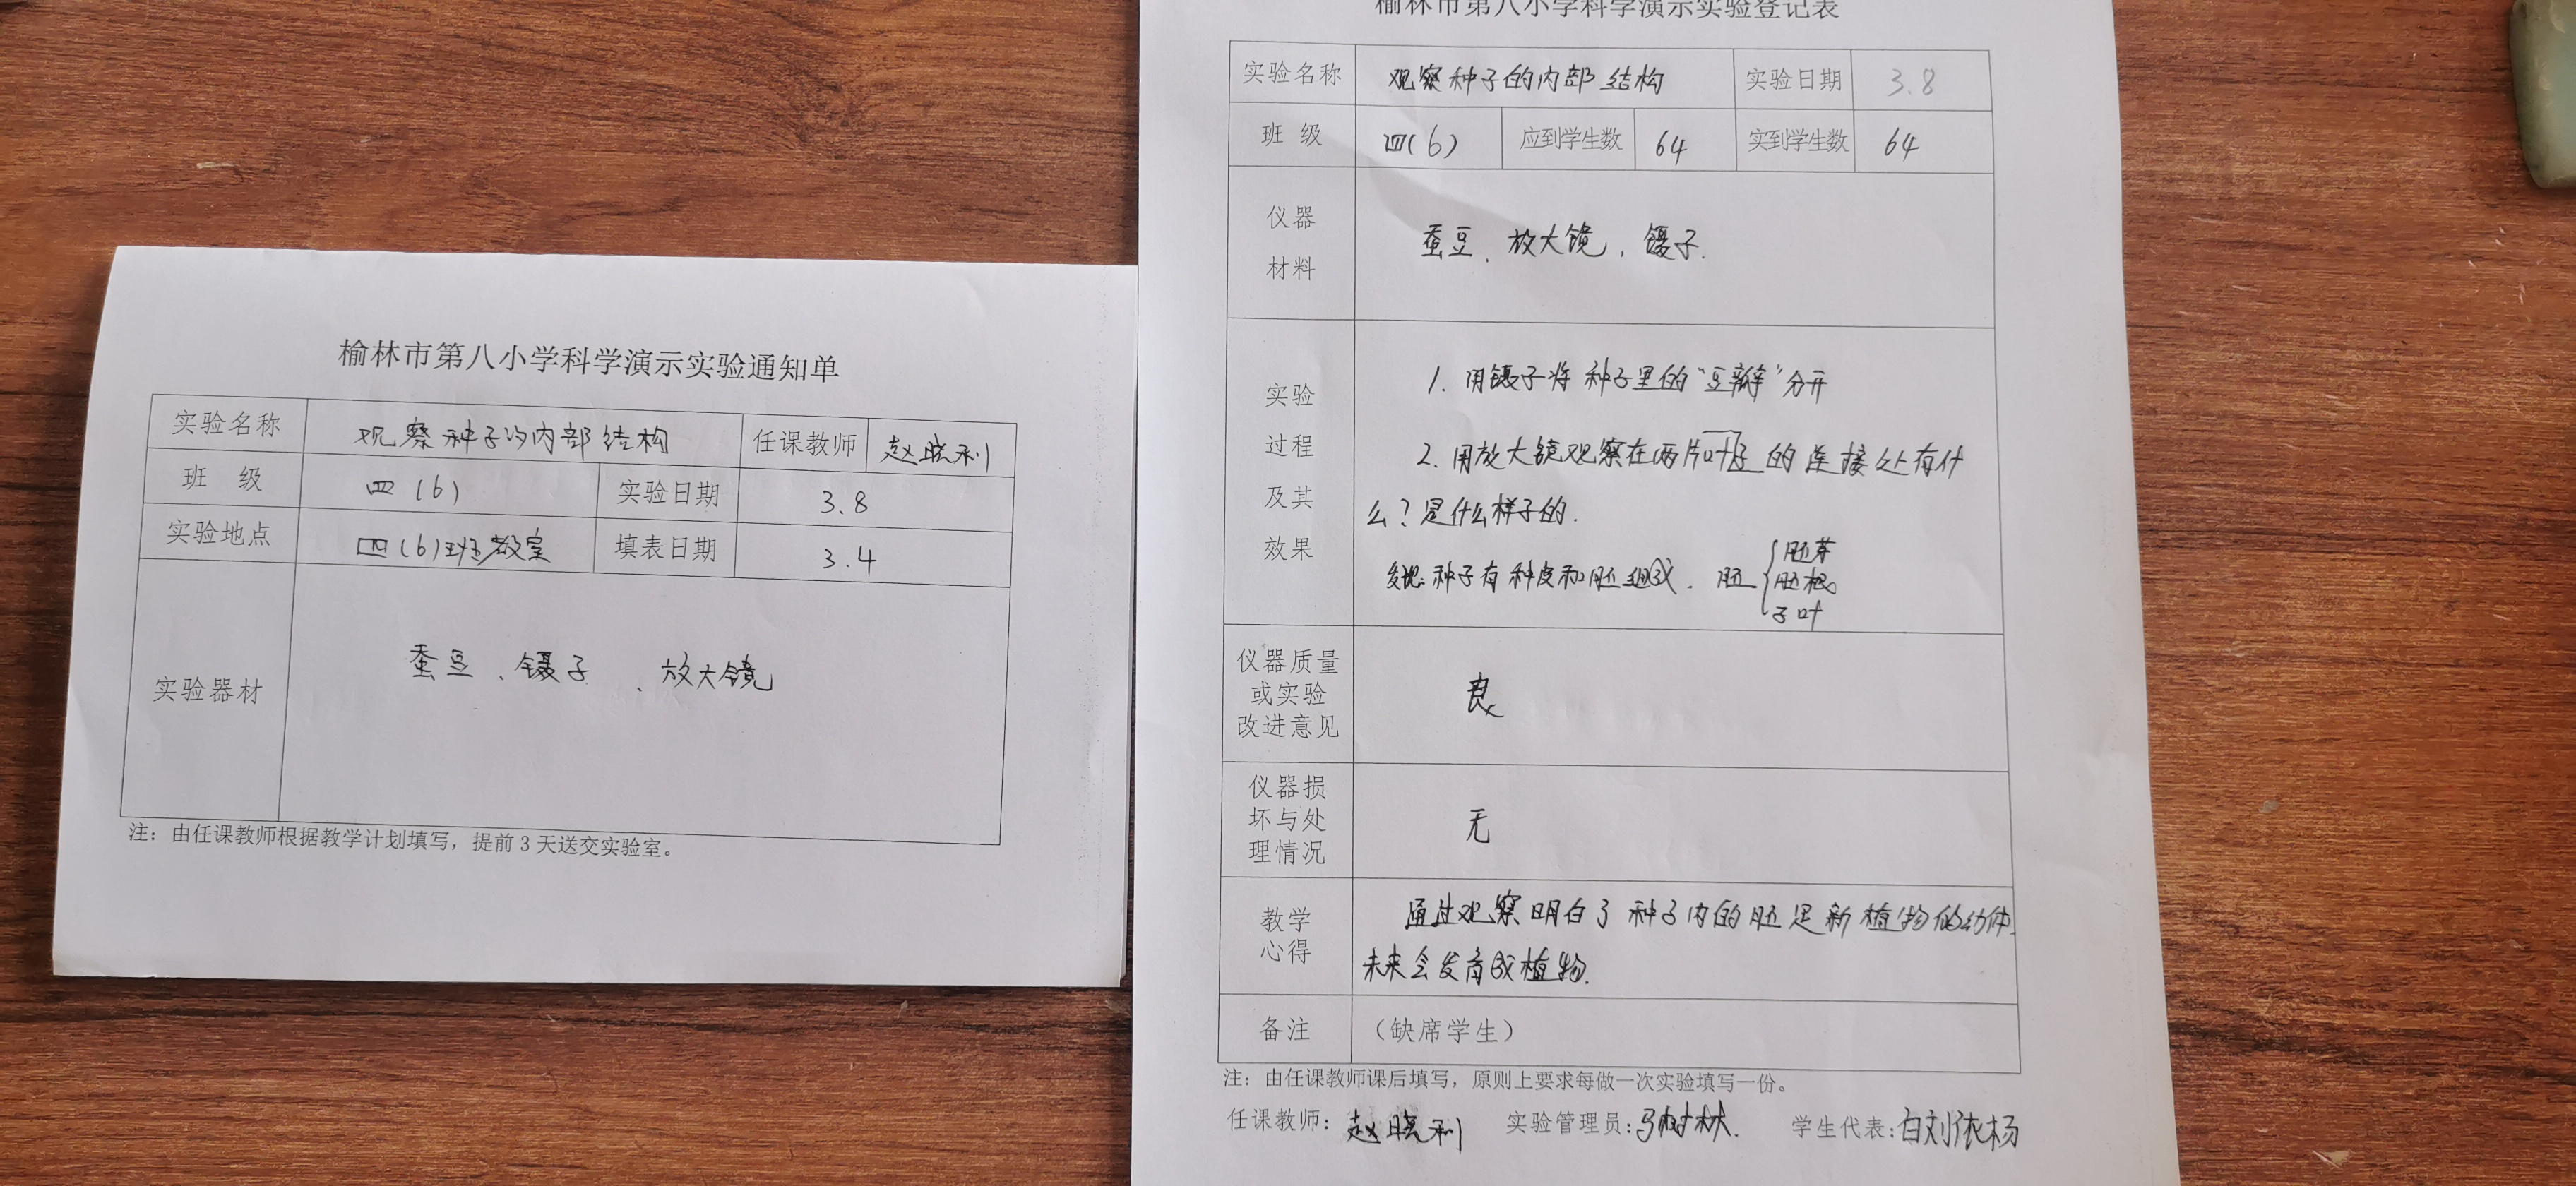 榆林市第八小学科学演示实验通知单
实验名称 观察种子的内部结构 任课教师 赵晓利
班 级 四(6) 实验日期 3.8
实验地点 四(6)班教室 填表日期 3.4
实验器材 蚕豆、镊子、放大镜
注：由任课教师根据教学计划填写，提前3天送交实验室。
榆林市第八小学科学演示实验登记表
实验名称 观察种子的内部结构 实验日期 3.8
班 级 四(6) 应到学生数 64 实到学生数 64
仪器
材料
蚕豆、放大镜、镊子.
实验
过程
及其
效果
1. 用镊子将种子里的“豆瓣”分开
2. 用放大镜观察在两片叶子的连接处有什
么？是什么样子的.
发现：种子有种皮和胚组成. 胚
胚芽
胚根
子叶
仪器质量
或实验
改进意见
良
仪器损
坏与处
理情况
无
教学
心得
通过观察明白了种子内的胚是新植物的幼体.
未来会发育成植物.
备注 （缺席学生）
注：由任课教师课后填写，原则上要求每做一次实验填写一份。
任课教师：赵晓利 实验管理员：马树林. 学生代表：白刘依杨